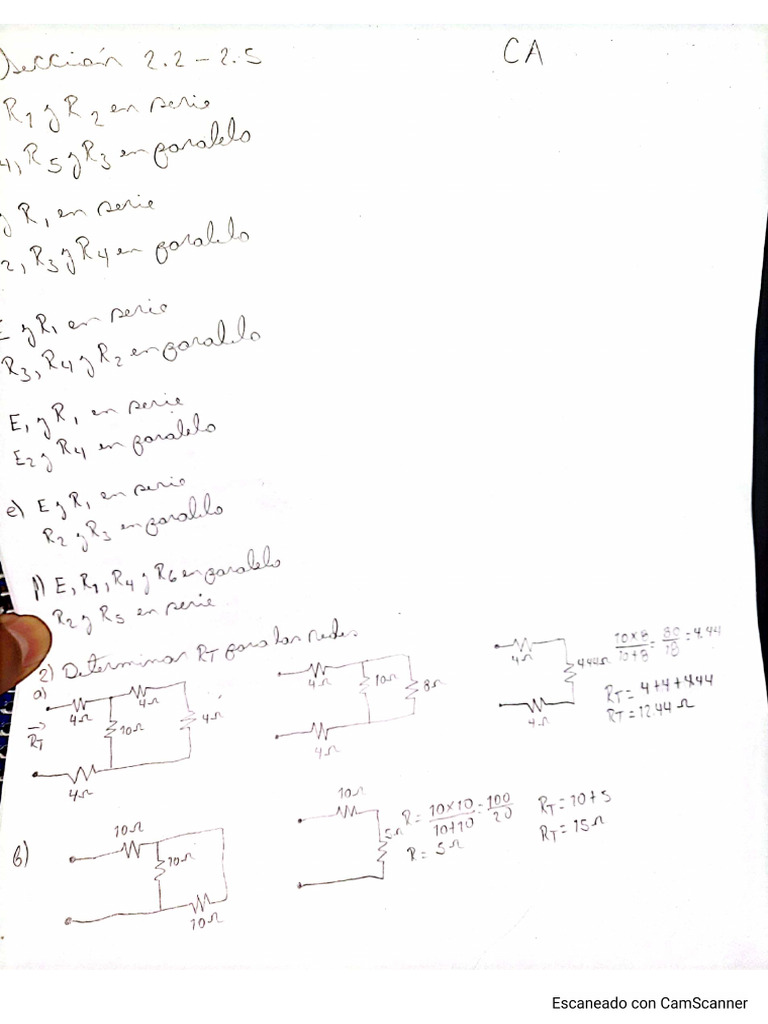 Sección 2.2 – 2.5
CA
R1 y R2 en serie
4, R5 y R3 en paralelo
y R1 en serie
2, R3 y R4 en paralelo
E y R1 en serie
R3, R4 y R2 en paralelo
E1 y R1 en serie
E2 y R4 en paralelo
e) E y R1 en serie
R2 y R3 en paralelo
f) E, R1, R4 y R6 en paralelo
R2 y R5 en serie
2) Determinar RT para las redes
a)
4Ω
4Ω
10Ω
4Ω
4Ω
RT
4Ω
10Ω
8Ω
4Ω
4Ω
4.44Ω
4Ω
10x8/10+8 = 80/18 = 4.44
RT = 4+4+4.44
RT = 12.44 Ω
b)
10Ω
10Ω
10Ω
10Ω
5Ω
R = 10x10/10+10 = 100/20
R = 5Ω
RT = 10+5
RT = 15Ω
Escaneado con CamScanner